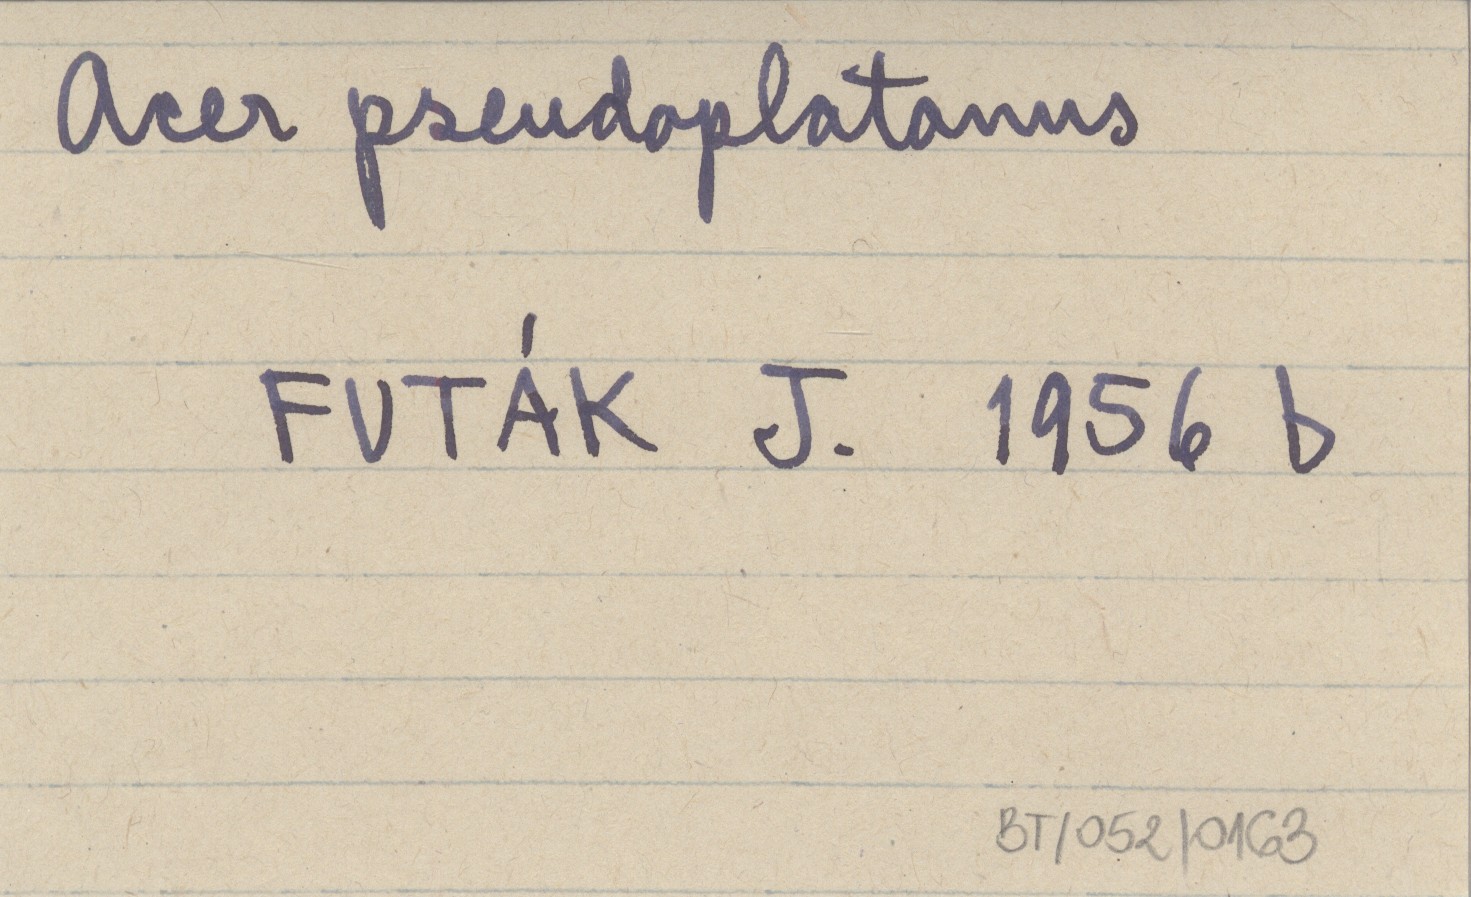 Acer pseudoplatanus
FUTÁK J. 1956 b
BT/052/0163